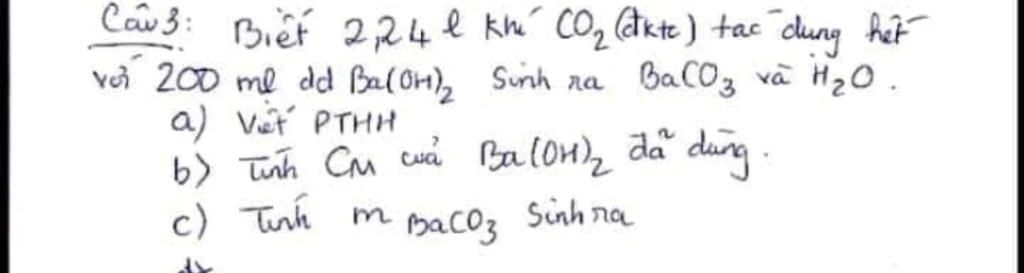 Câu 3: Biết 2,24 l khí CO₂ (đktc) tác dụng hết
với 200 ml dd Ba(OH)₂ Sinh ra BaCO₃ và H₂O.
a) Viết PTHH
b) Tính CM của Ba(OH)₂ đã dùng.
c) Tính m BaCO₃ Sinh ra